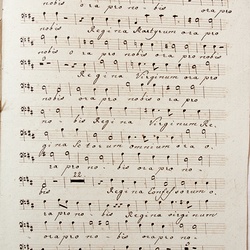 nobis ora pro no - bis ora pro
nobis Regina Martyrum ora pro
nobis o - ra pro nobis o ra pro
Re gi na Virginum ora pro
nobis ora pro nobis o ra pro
no - bis Regina Virginum Re
gina Sctorum omnium ora o
ra pro no - bis ora pro no -
22
bis Regina Confessorum o
ra pro no - bis Regina virginum
ora pro no - bis ora pro no -